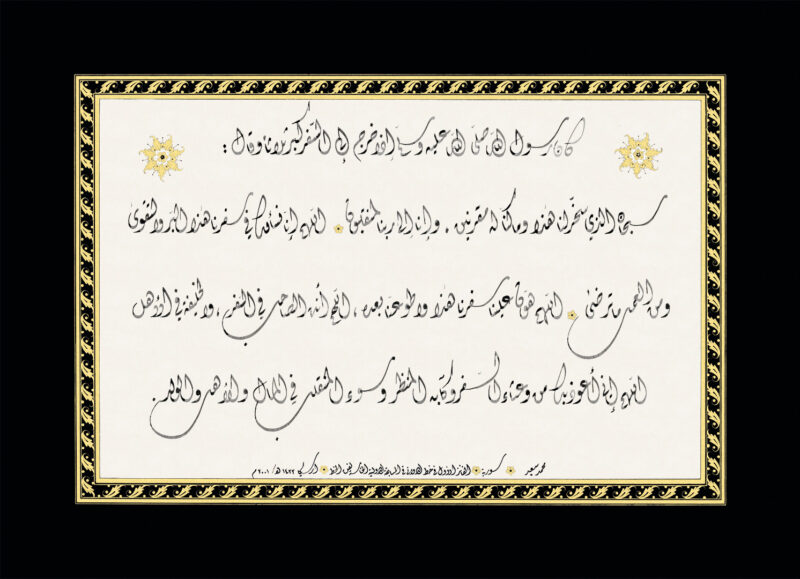 كان رسول الله صلى الله عليه وسلم إذا خرج إلى السفر كبر ثلاثا وقال :
سبحان الذي سخر لنا هذا وما كنا له مقرنين . وإنا إلى ربنا لمنقلبون اللهم إنا نسألك في سفرنا هذا البر والتقوى
ومن العمل ما ترضى اللهم هون علينا سفرنا هذا واطو عنا بعده ، اللهم أنت الصاحب في السفر ، والخليفة في الأهل
اللهم إني أعوذ بك من وعثاء السفر وكآبة المنظر وسوء المنقلب في المال والأهل والولد .
محمد سعيد سورية الفائز الأول في خط ١٤٢٢ هـ / ٢٠٠١ م